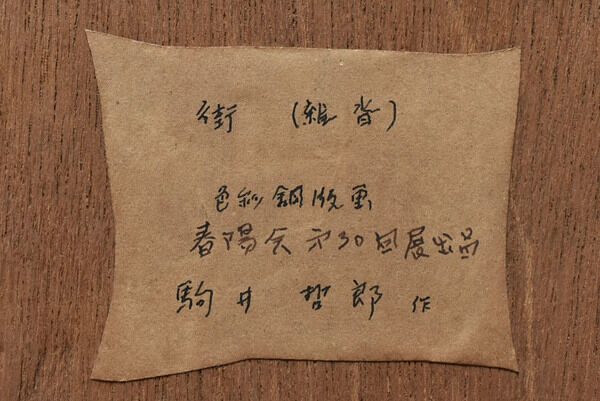 街 (雑沓)
色彩銅版画
春陽会 第30回展出品
駒井 哲郎 作